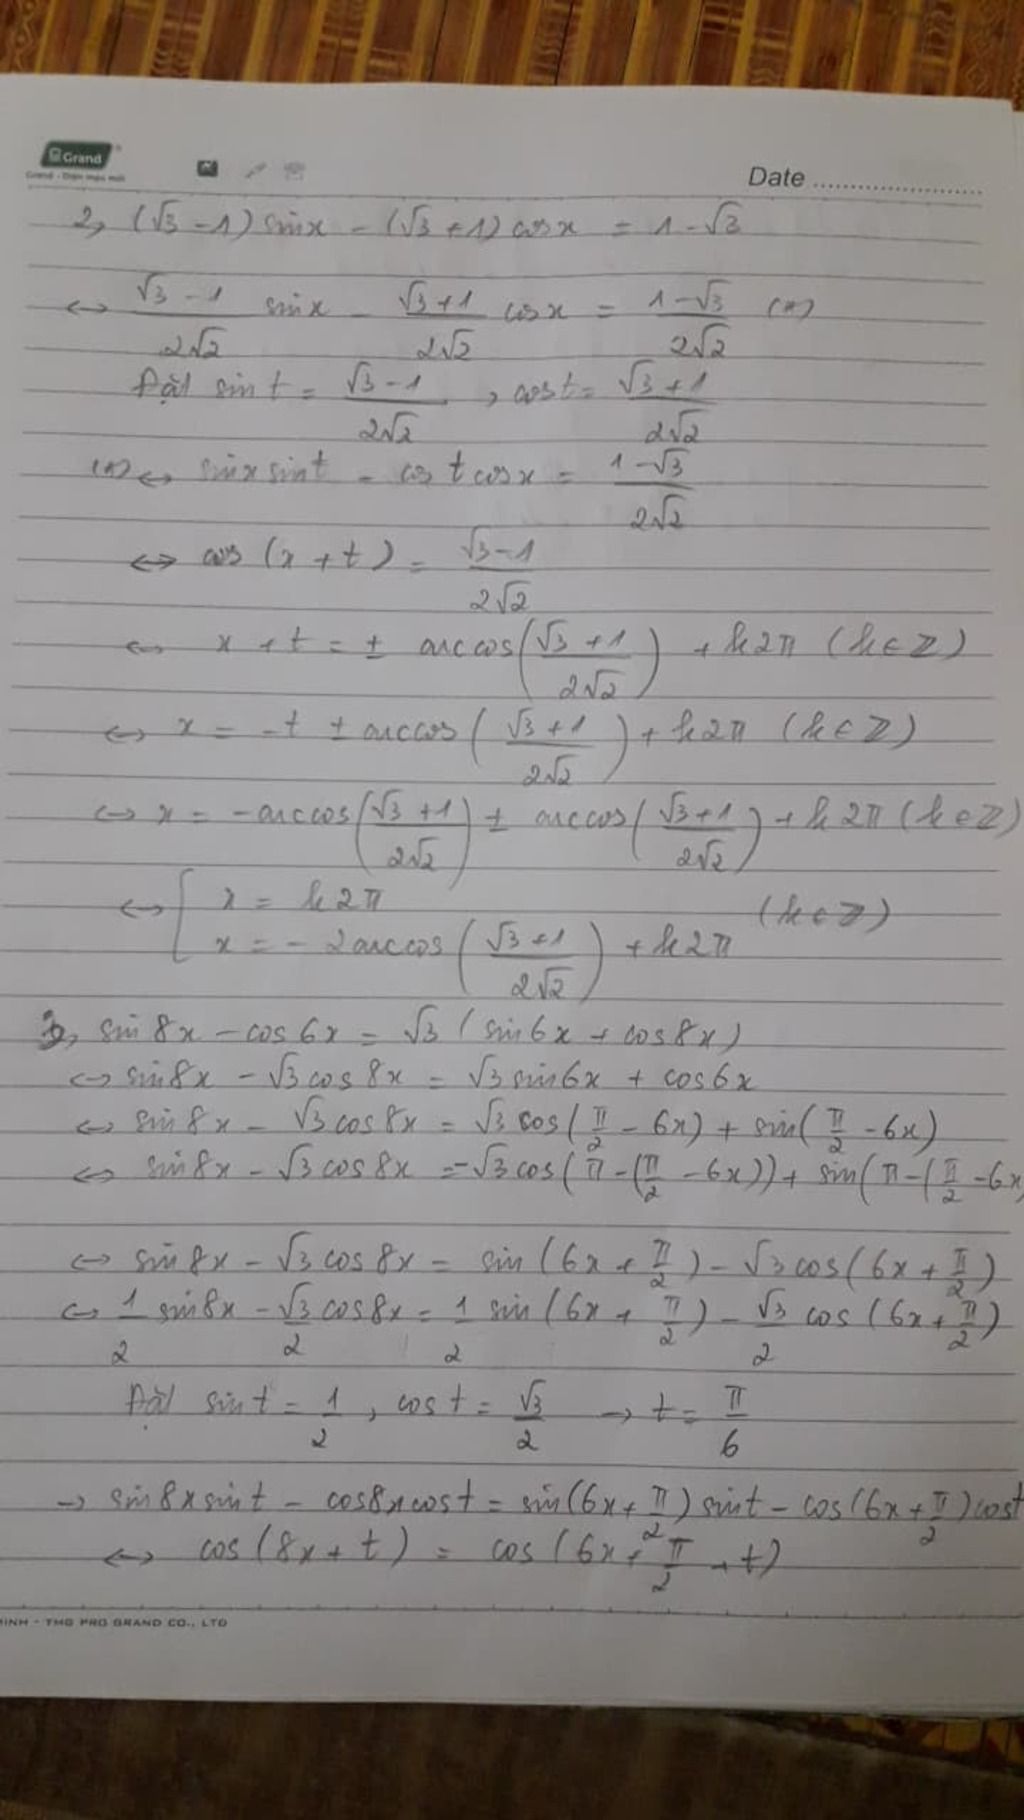 Grand
Grand - Diện mạo mới
Date
2, (√3 - 1) sinx - (√3 + 1) cosx = 1 - √3
↔ (√3 - 1)/(2√2) sinx - (√3 + 1)/(2√2) cosx = (1 - √3)/(2√2) (*)
Đặt sint = (√3 - 1)/(2√2), cost = (√3 + 1)/(2√2)
(*) ↔ sinx sint - cost cosx = (1 - √3)/(2√2)
↔ cos (x + t) = (√3 - 1)/(2√2)
↔ x + t = ± arccos((√3 + 1)/(2√2)) + k2π (k ∈ Z)
↔ x = -t ± arccos((√3 + 1)/(2√2)) + k2π (k ∈ Z)
↔ x = -arccos((√3 + 1)/(2√2)) ± arccos((√3 + 1)/(2√2)) + k2π (k ∈ Z)
↔ [ x = k2π
x = - 2arccos((√3 + 1)/(2√2)) + k2π (k ∈ Z)
3, sin8x - cos6x = √3 (sin6x + cos8x)
↔ sin8x - √3cos8x = √3sin6x + cos6x
↔ sin8x - √3cos8x = √3cos(π/2 - 6x) + sin(π/2 - 6x)
↔ sin8x - √3cos8x = -√3cos(π - (π/2 - 6x)) + sin(π - (π/2 - 6x
↔ sin8x - √3cos8x = sin(6x + π/2) - √3cos(6x + π/2)
↔ 1/2 sin8x - √3/2 cos8x = 1/2 sin(6x + π/2) - √3/2 cos(6x + π/2)
Đặt sint = 1/2, cost = √3/2 → t = π/6
→ sin8xsint - cos8xcost = sin(6x + π/2)sint - cos(6x + π/2)cost
↔ cos(8x + t) = cos(6x + π/2 + t)
THG PRO GRAND CO., LTD